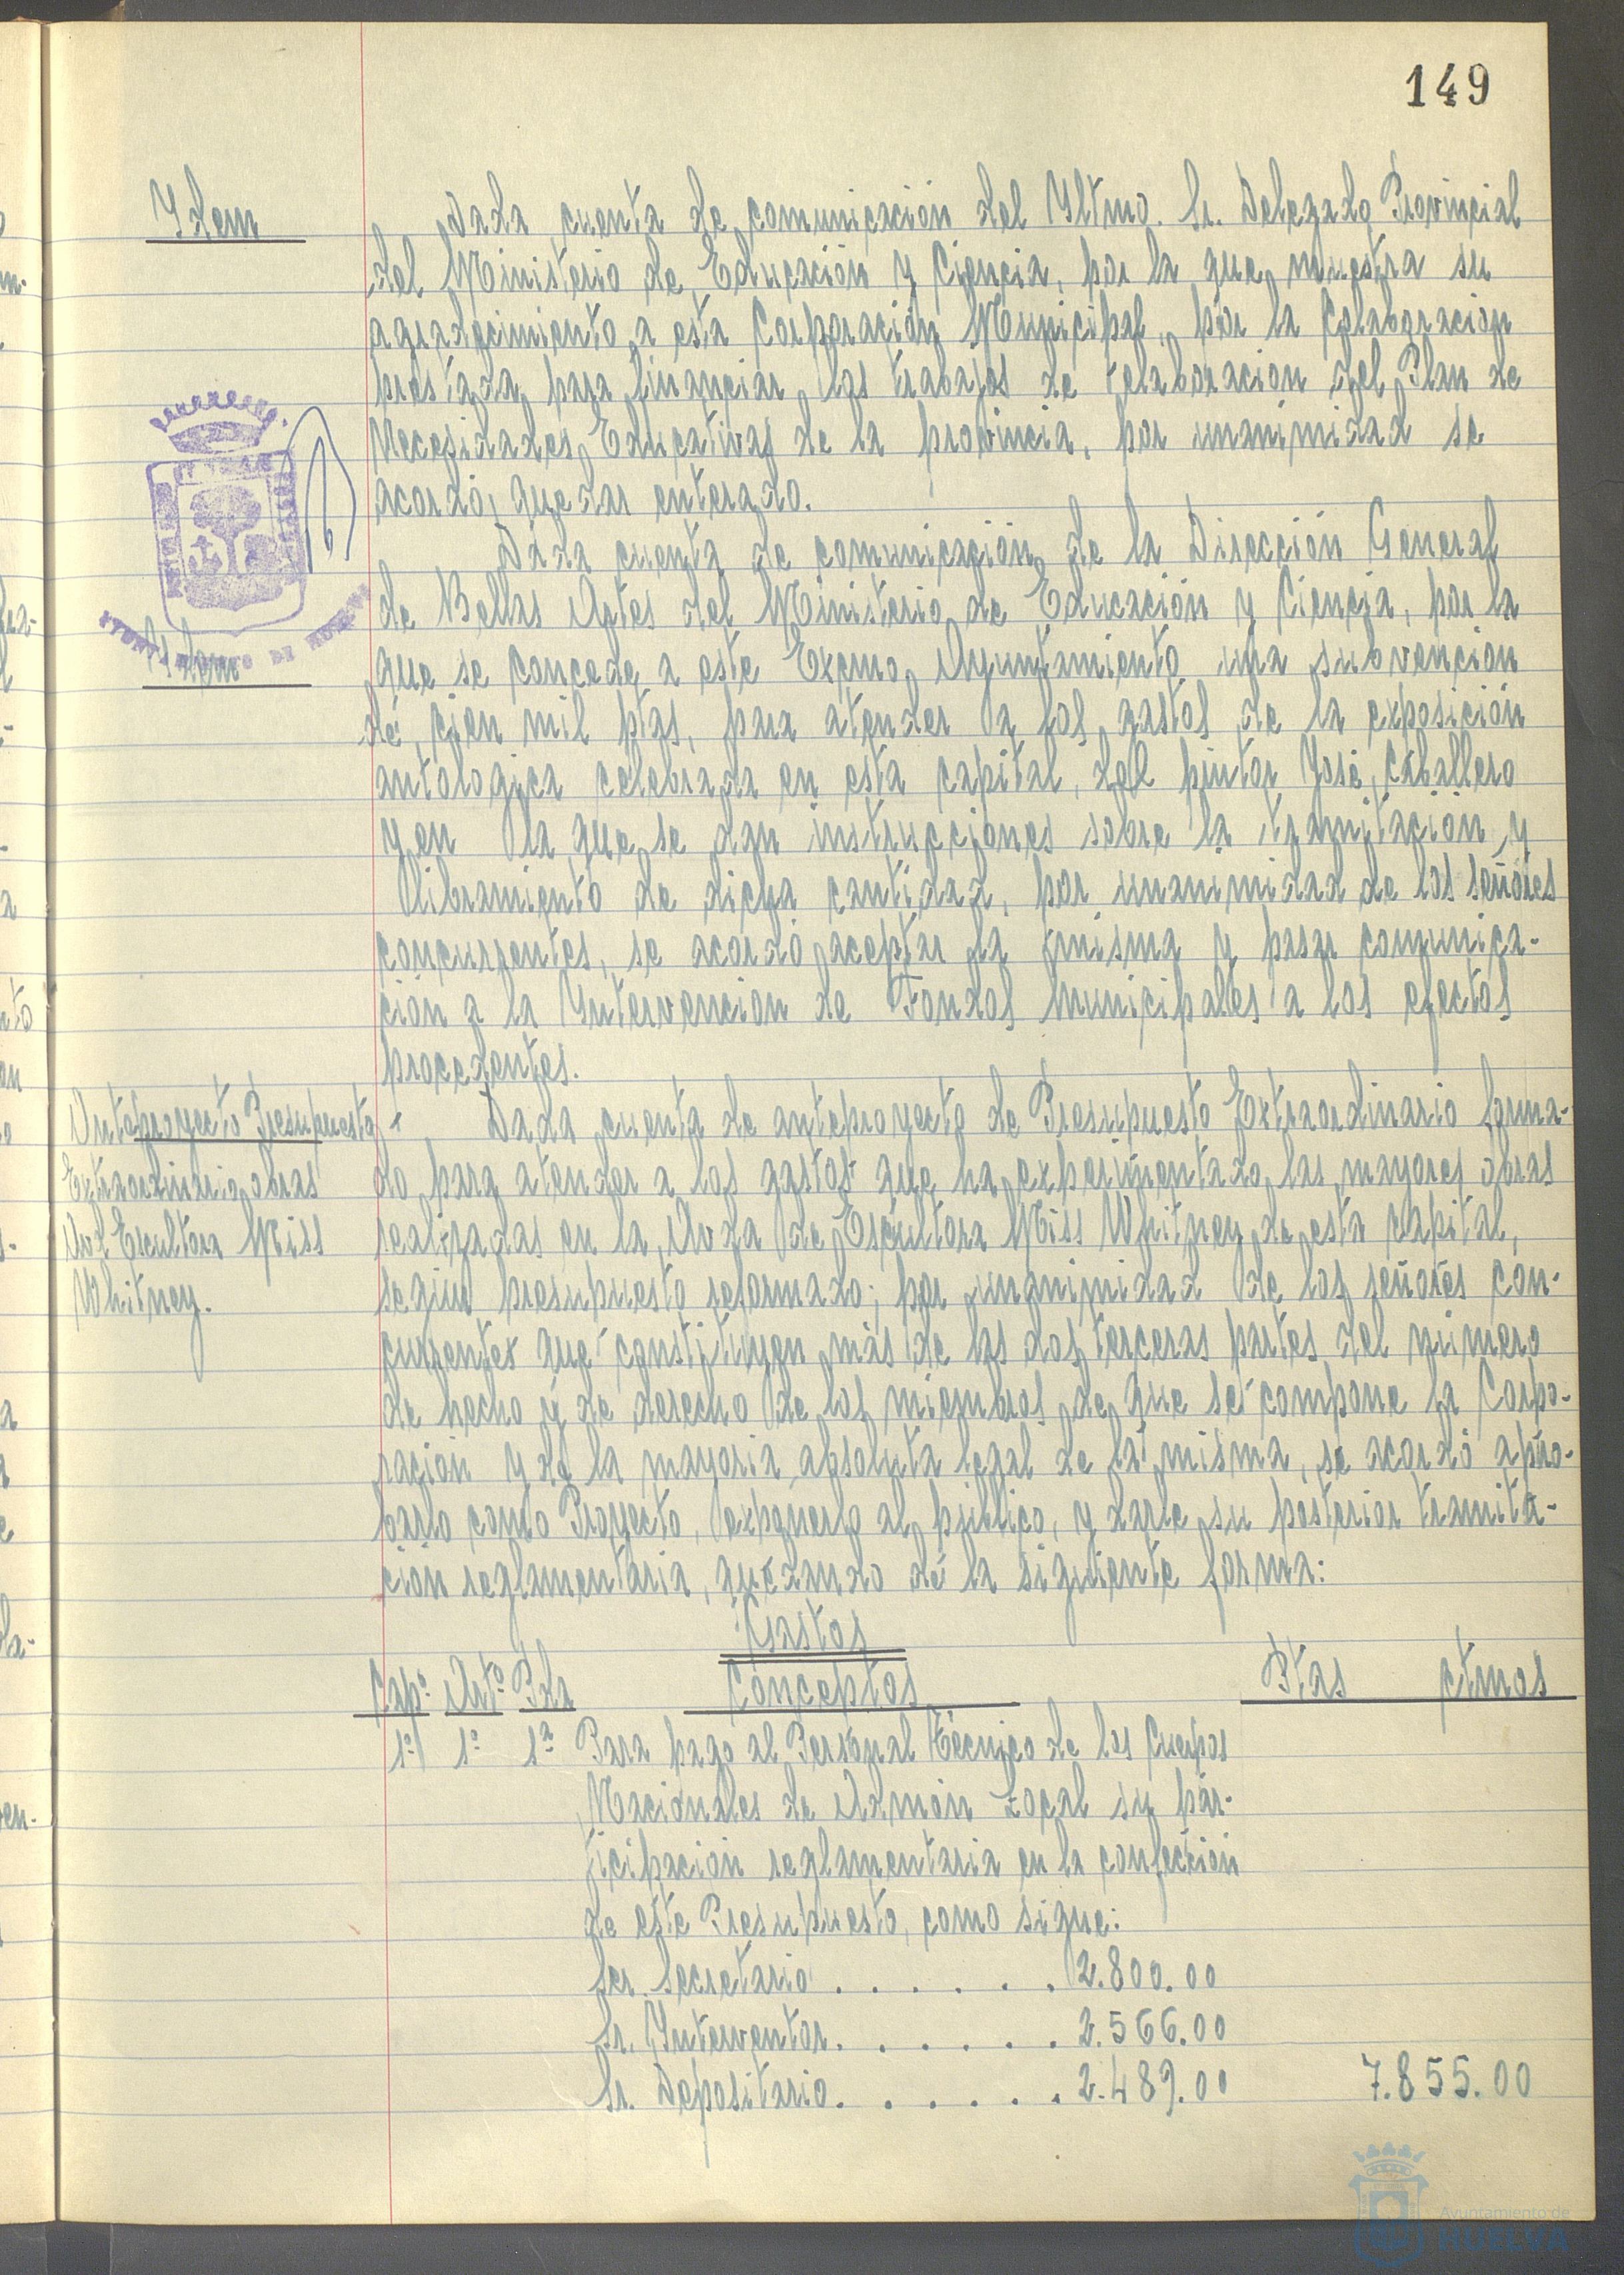 149
Idem
Dada cuenta de comunicación del Yltmo. Sr. Delegado Provincial
del Ministerio de Educación y Ciencia, por la que muestra su
agradecimiento a esta Corporación Municipal, por la colaboración
prestada para financiar los trabajos de elaboración del Plan de
Necesidades Educativas de la provincia, por unanimidad se
acordó, quedar enterado.
Idem
Dada cuenta de comunicación de la Dirección General
de Bellas Artes del Ministerio de Educación y Ciencia, por la
que se concede a este Excmo. Ayuntamiento una subvención
de cien mil ptas, para atender a los gastos de la exposición
antologica celebrada en esta capital, del pintor José Caballero
y en la que se dan instrucciones sobre la tramitación y
libramiento de dicha cantidad, por unanimidad de los señores
concurrentes, se acordó aceptar la misma y pasar comunica-
ción a la Yntervención de Fondos Municipales a los efectos
procedentes.
Anteproyecto Presupuesto
Extraordinario obras
Avd Escultora Miss
Whitney.
Dada cuenta de anteproyecto de Presupuesto Extraordinario forma-
do para atender a los gastos que ha experimentado las mayores obras
realizadas en la Avda de Escultora Miss Whitney de esta capital,
segun presupuesto reformado; por unanimidad de los señores con-
currentes que constituyen más de las dos terceras partes del número
de hecho y de derecho de los miembros de que se compone la Corpo-
ración y de la mayoria absoluta legal de la misma, se acordó apro-
barlo como Proyecto, exponerlo al público, y darle su posterior tramita-
ción reglamentaria, quedando de la siguiente forma:
Gastos
Capº Artº Pda Conceptos Ptas ctmos
1º 1º 1ª Para pago al Personal Técnico de los Cuerpos
Nacionales de Admón Local su par-
ticipación reglamentaria en la confección
de este Presupuesto, como sigue:
Ser. Secretario . . . . . . 2.800.00
Sr. Ynterventor . . . . . . 2.566.00
Sr. Depositario . . . . . . 2.489.00 7.855.00
Ayuntamiento de
HUELVA